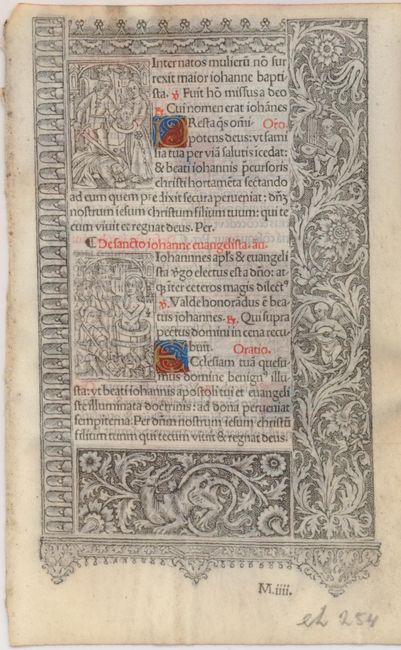 Internatos mulierũ nõ sur
rexit maior iohanne bapti
sta. ℣ Fuit hõ missus a deo
℟ Cui nomen erat iohãnes
PResta q̃s om̃i Oro.
potens deus: vt fami
lia tua per viã salutis icedat:
& beati iohannis p̃cursoris
christi hortamẽta sectando
ad eum quem predixit secura perueniat: dñ3
nostrum iesum christum filium tuum: qui te
cum viuit et regnat deus. Per.
¶ De sancto iohanne euangelista. an.
Iohannnes apl's & euangeli
sta v̓go electus est a dño: at
q̃ iter ceteros magis dilect9
℣. Valde honorãdus ẽ bea
tus iohannes. ℟. Qui supra
pectus domini in cena recu
buit. Oratio.
ECclesiam tuã quesu
mus domine benign9 illu
stra: vt beati iohannis apostoli tui et euangeli
ste illuminata doctrinis: ad dona perueniat
sempiterna. Per dñm nostrum iesum christũ
filium tuum qui tecum viuit & regnat deus.
M.iiii.
254